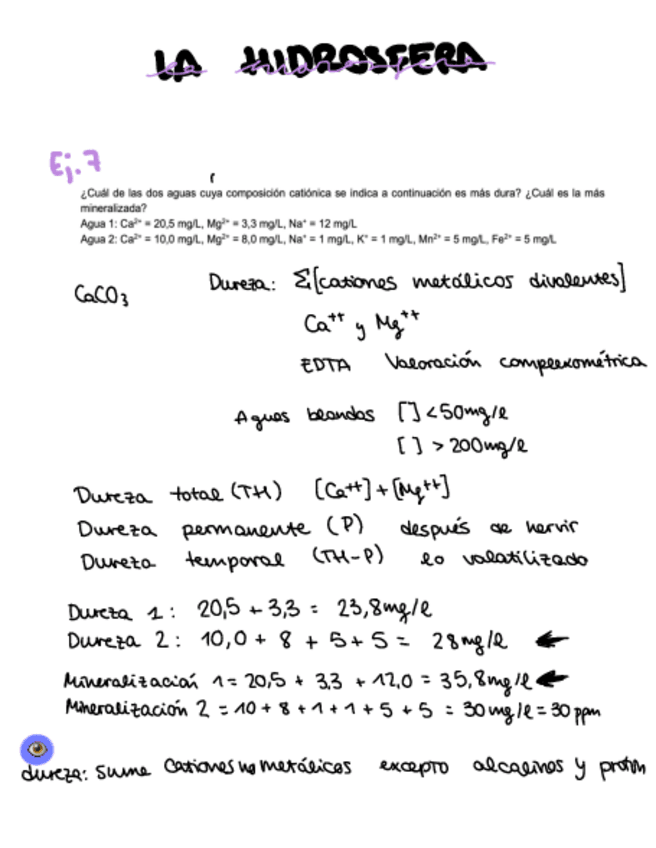 LA HIDROSFERA
Ej. 7
¿Cuál de las dos aguas cuya composición catiónica se indica a continuación es más dura? ¿Cuál es la más
mineralizada?
Agua 1: Ca²⁺ = 20,5 mg/L, Mg²⁺ = 3,3 mg/L, Na⁺ = 12 mg/L
Agua 2: Ca²⁺ = 10,0 mg/L, Mg²⁺ = 8,0 mg/L, Na⁺ = 1 mg/L, K⁺ = 1 mg/L, Mn²⁺ = 5 mg/L, Fe²⁺ = 5 mg/L
CaCO3 Dureza: Σ[cationes metálicos divalentes]
Ca⁺⁺ y Mg⁺⁺
EDTA Valoración complexométrica
Aguas blandas [ ] < 50mg/l
[ ] > 200mg/l
Dureza total (TH) [Ca⁺⁺] + [Mg⁺⁺]
Dureza permanente (P) después de hervir
Dureza temporal (TH-P) lo volatilizado
Dureza 1: 20,5 + 3,3 = 23,8mg/l
Dureza 2: 10,0 + 8 + 5 + 5 = 28mg/l ←
Mineralización 1 = 20,5 + 3,3 + 12,0 = 35,8mg/l ←
Mineralización 2 = 10 + 8 + 1 + 1 + 5 + 5 = 30mg/l = 30 ppm
dureza: suma cationes metálicos excepto alcalinos y protón